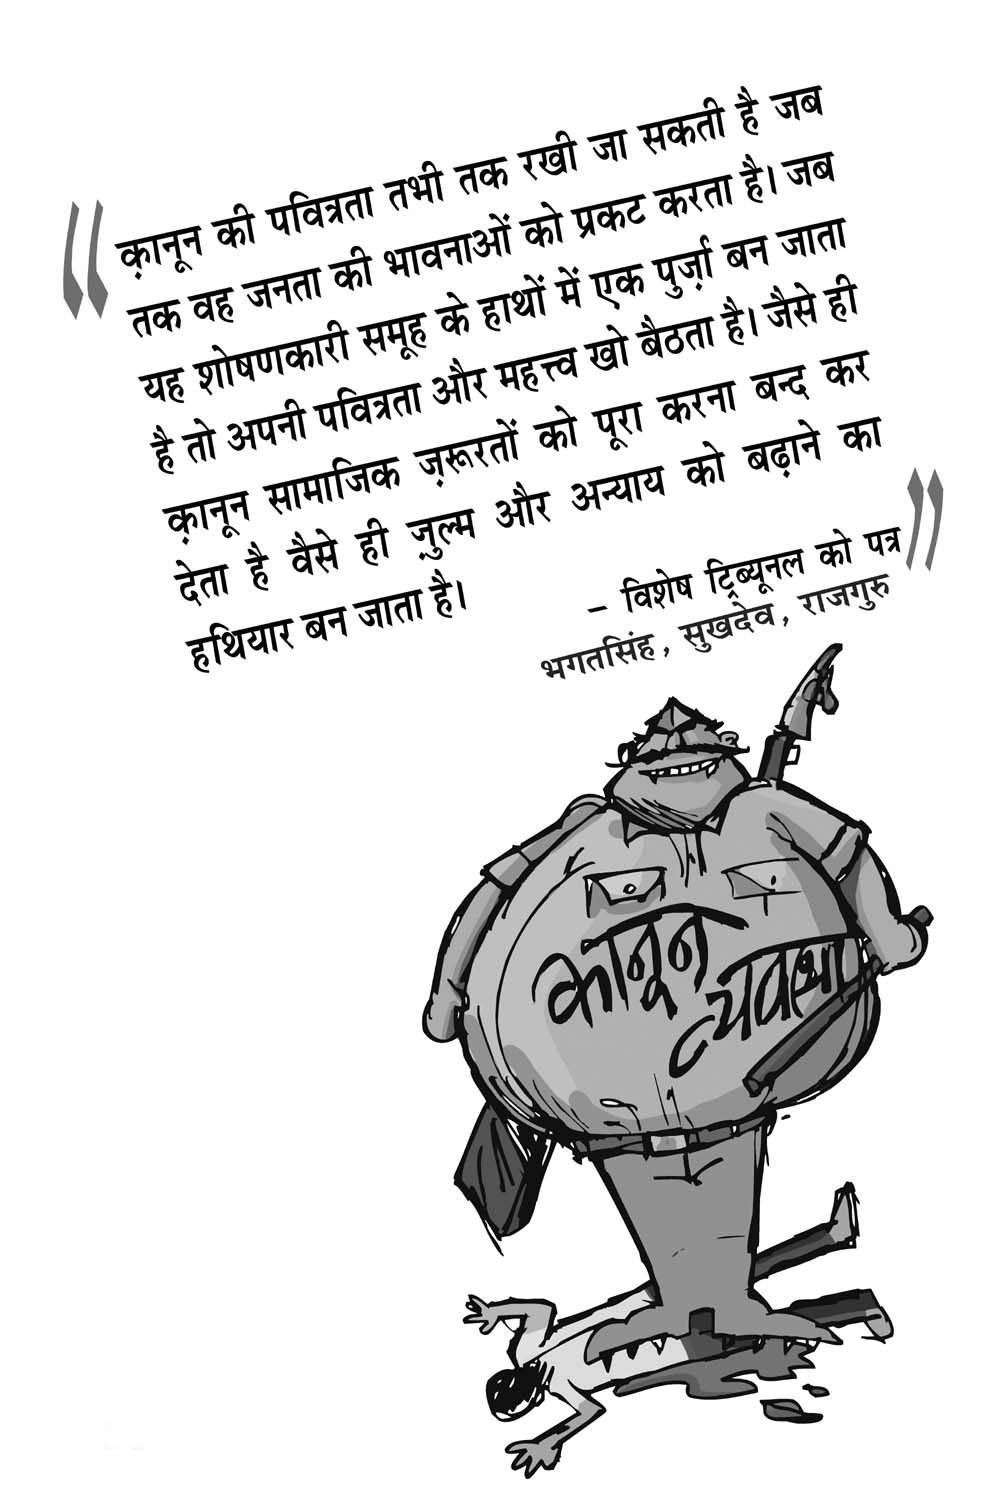 क़ानून की पवित्रता तभी तक रखी जा सकती है जब
तक वह जनता की भावनाओं को प्रकट करता है। जब
यह शोषणकारी समूह के हाथों में एक पुर्ज़ा बन जाता
है तो अपनी पवित्रता और महत्त्व खो बैठता है। जैसे ही
क़ानून सामाजिक ज़रूरतों को पूरा करना बन्द कर
देता है वैसे ही ज़ुल्म और अन्याय को बढ़ाने का
हथियार बन जाता है।
– विशेष ट्रिब्यूनल को पत्र
भगतसिंह, सुखदेव, राजगुरु
कानून
व्यवस्था